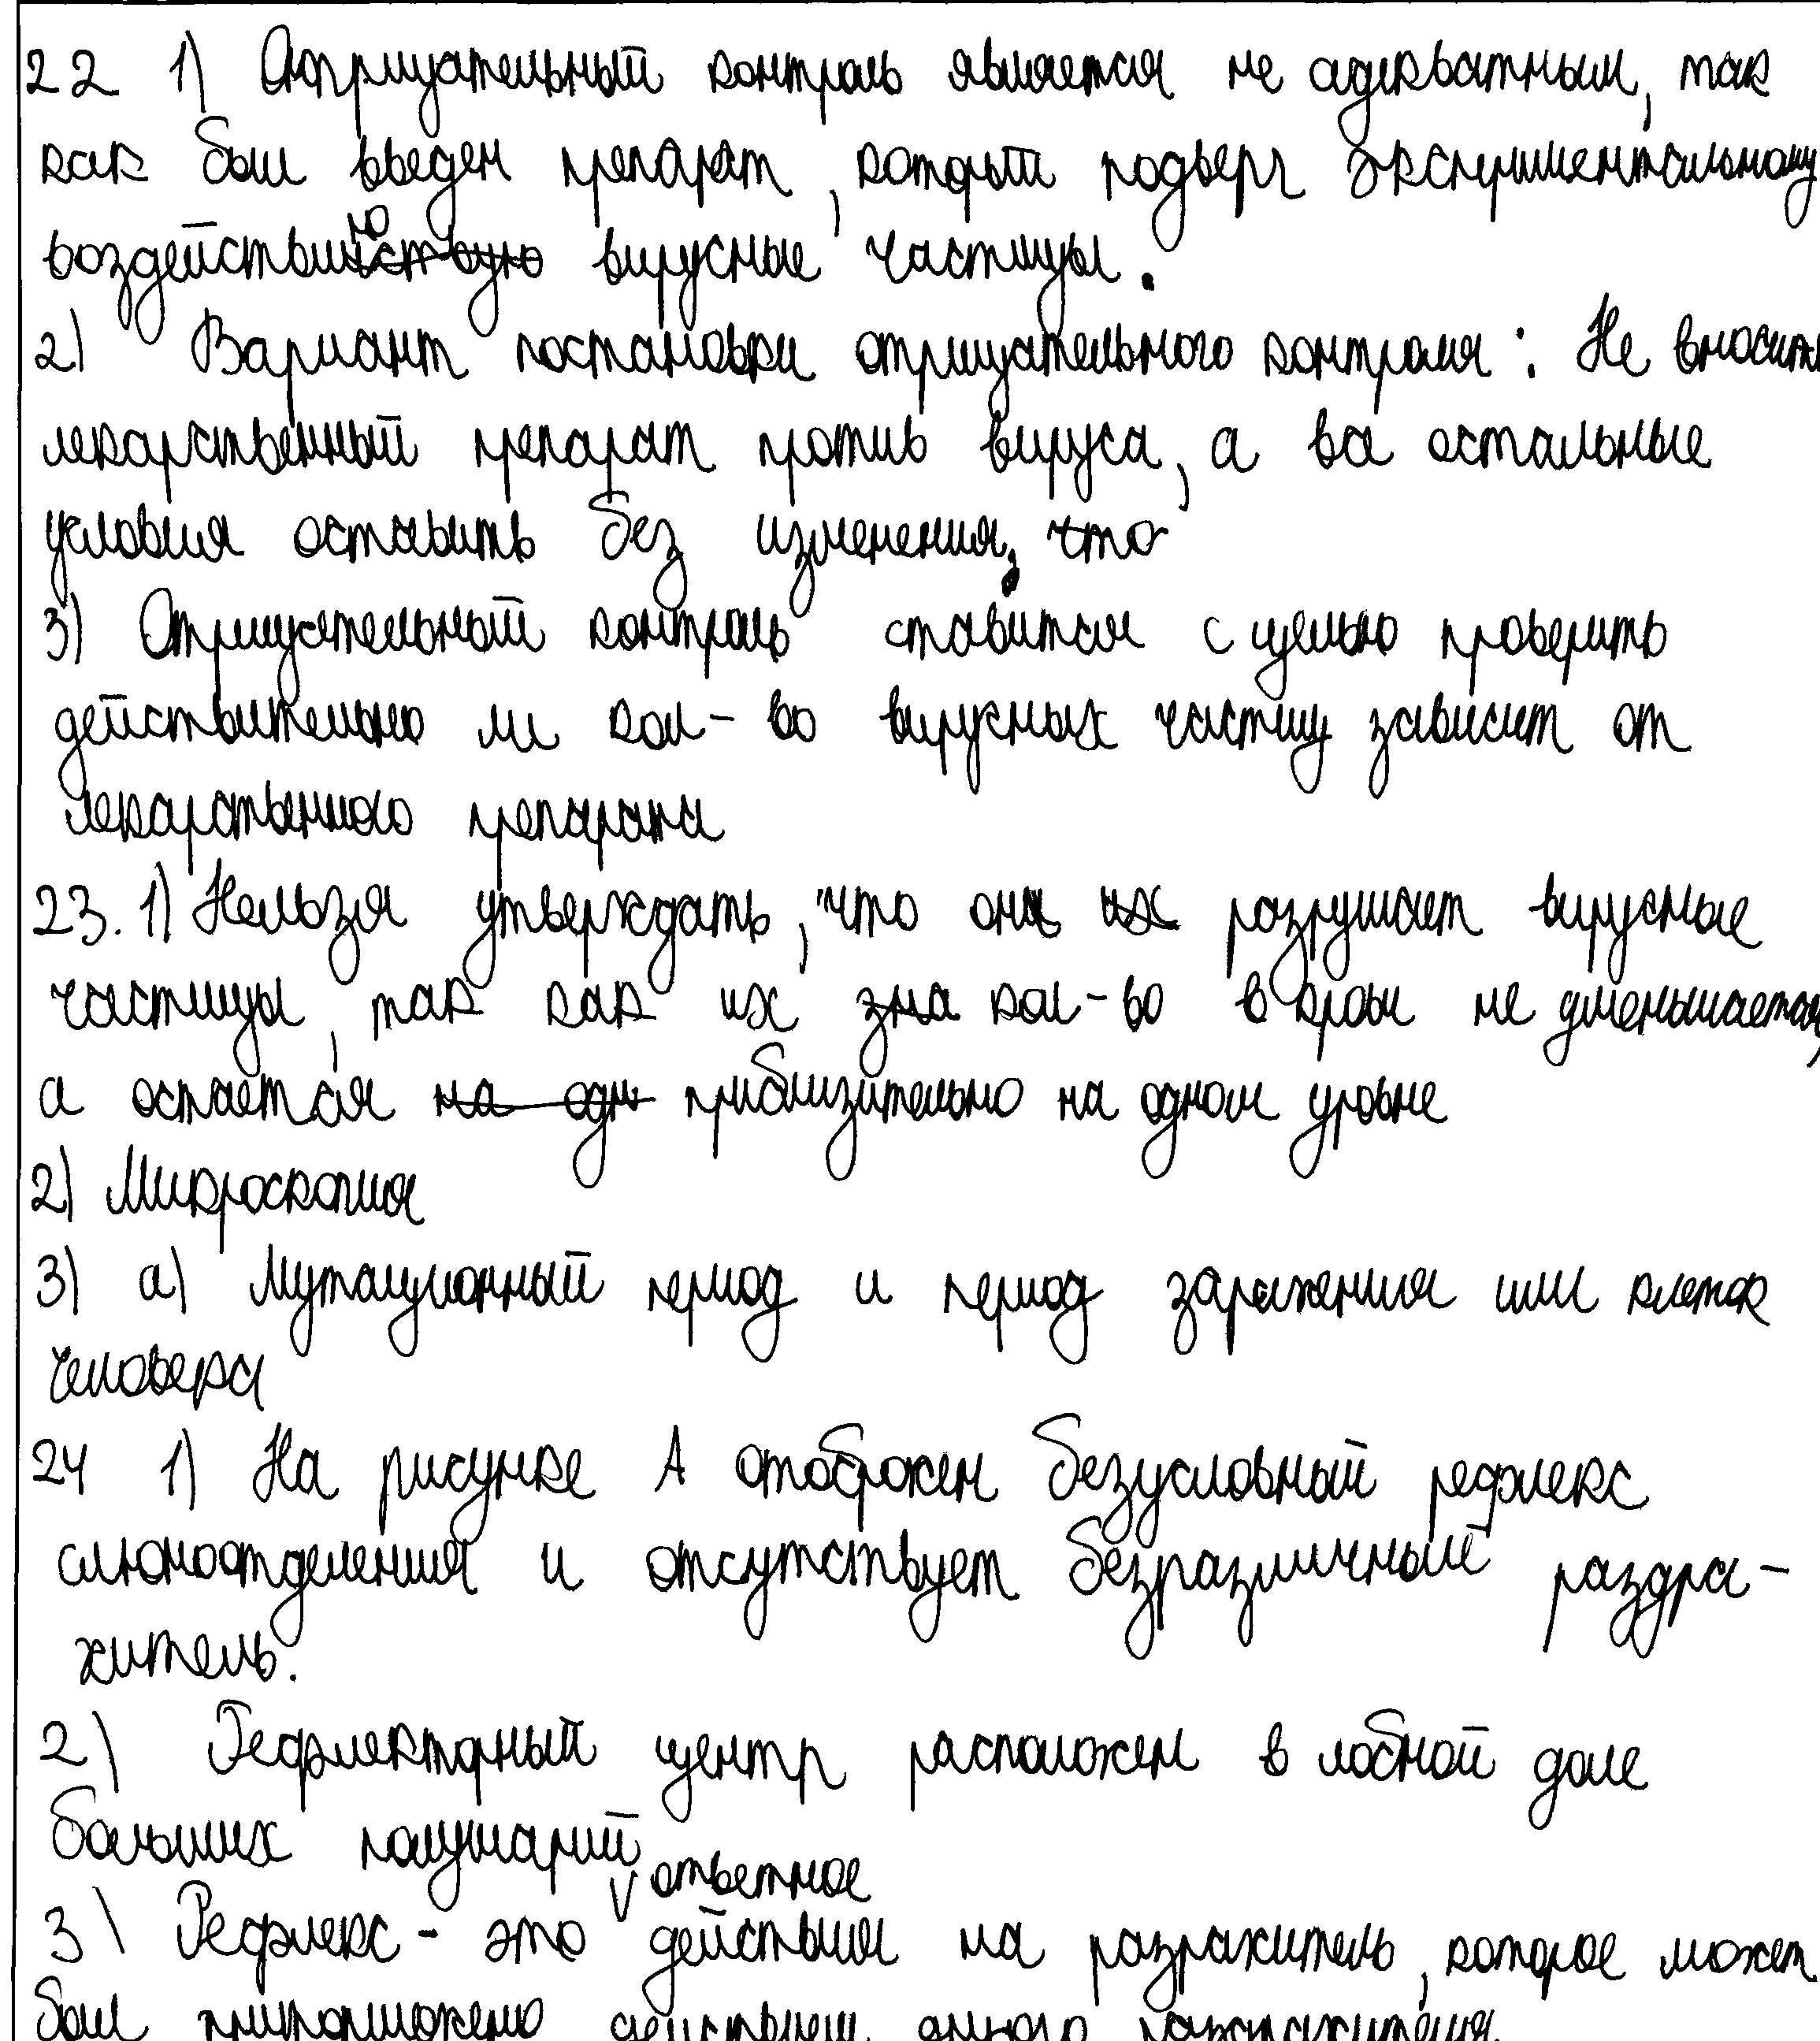 22 1) Отрицательный контроль является не адекватным, так
как был введен препарат, который подверг экспериментальному
воздействию вирусные частицы.
2) Вариант постановки отрицательного контроля: Не вносить
лекарственный препарат против вируса, а все остальные
условия оставить без изменения. что
3) Отрицательный контроль ставится с целью проверить
действительно ли кол-во вирусных частиц зависит от
лекарственного препарата
23. 1) Нельзя утверждать, что они их разрушает вирусные
частицы, так как их зна кол-во в крови не уменьшается,
а остается на одн приблизительно на одном уровне
2) Микроскопия
3) а) Мутационный период и период заражения ими клеток
человека
24 1) На рисунке А отображен безусловный рефлекс
слюноотделения и отсутствует безразличный раздра-
житель.
2) Рефлекторный центр расположен в лобной доле
больших полушарий
3) Рефлекс - это ответное действия на разражитель, которое может
был действием другого